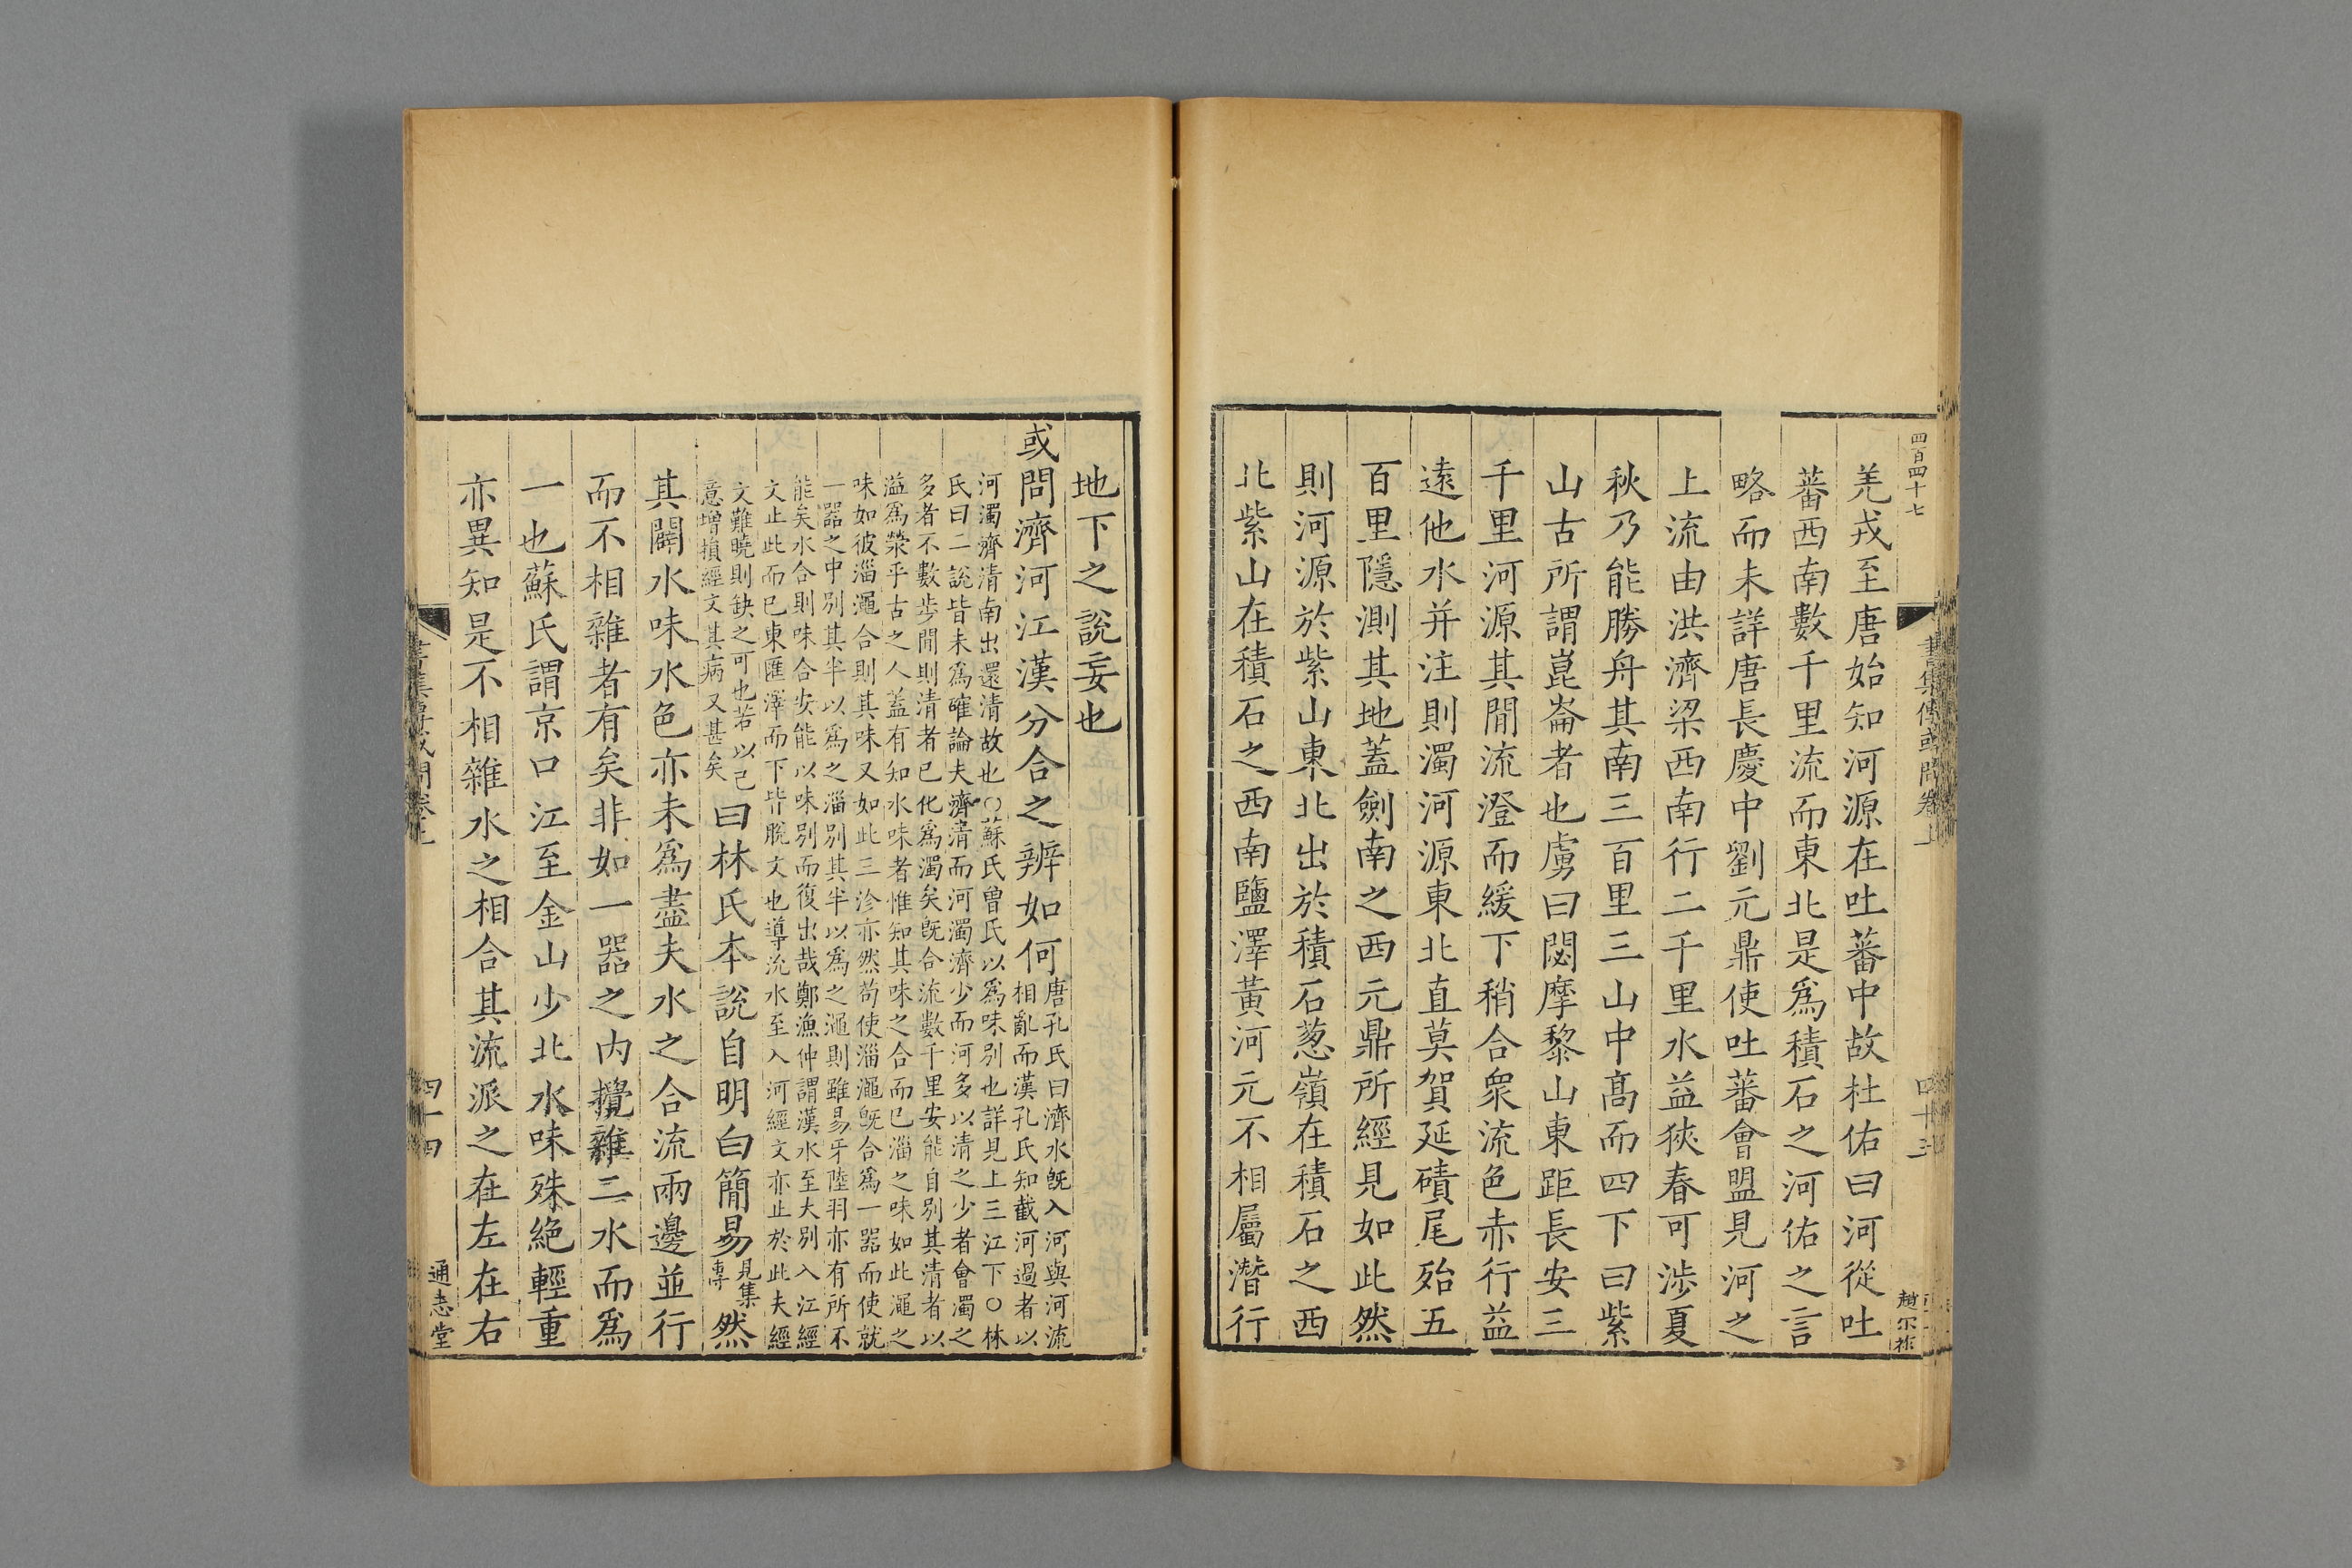 四百四十七
羌戎至唐始知河源在吐蕃中故杜佑曰河從吐
蕃西南數千里流而東北是爲積石之河佑之言
略而未詳唐長慶中劉元鼎使吐蕃會盟見河之
上流由洪濟梁西南行二千里水益狹春可涉夏
秋乃能勝舟其南三百里三山中髙而四下曰紫
山古所謂崑崙者也虜曰悶摩黎山東距長安三
千里河源其閒流澄而緩下稍合衆流色赤行益
逺他水并注則濁河源東北直莫賀延磧尾殆五
百里隱測其地蓋劍南之西元鼎所經見如此然
則河源於紫山東北出於積石葱嶺在積石之西
北紫山在積石之西南鹽澤黃河元不相屬潛行
書集傳或問卷上
四十三
趙尔祚
地下之說妄也
或問濟河江漢分合之辨如何
唐孔氏曰濟水旣入河與河流
相亂而漢孔氏知截河過者以
河濁濟清南出還清故也○蘇氏曾氏以爲味别也詳見上三江下○林
氏曰二說皆未爲確論夫濟清而河濁濟少而河多以清之少者會濁之
多者不數步閒則清者已化爲濁矣旣合流數千里安能自别其清者以
溢爲滎乎古之人蓋有知水味者惟知其味之合而已淄之味如此澠之
味如彼淄澠合則其味又如此三沴亦然苟使淄澠旣合爲一器而使就
一器之中别其半以爲之淄别其半以爲之澠則雖易牙陸羽亦有所不
能矣水合則味合安能以味别而復出哉鄭漁仲謂漢水至大别入江經
文止此而已東匯澤而下皆脫文也導沇水至入河經文亦止於此夫經
文難曉則缺之可也若以己
意增損經文其病又甚矣
曰林氏本說自明白簡易
見集
傳
然
其闢水味水色亦未爲盡夫水之合流兩邊並行
而不相雜者有矣非如一器之内攪雜二水而爲
一也蘇氏謂京口江至金山少北水味殊絶輕重
亦異知是不相雜水之相合其流派之在左在右
書集傳或問卷上
四十四
通志堂